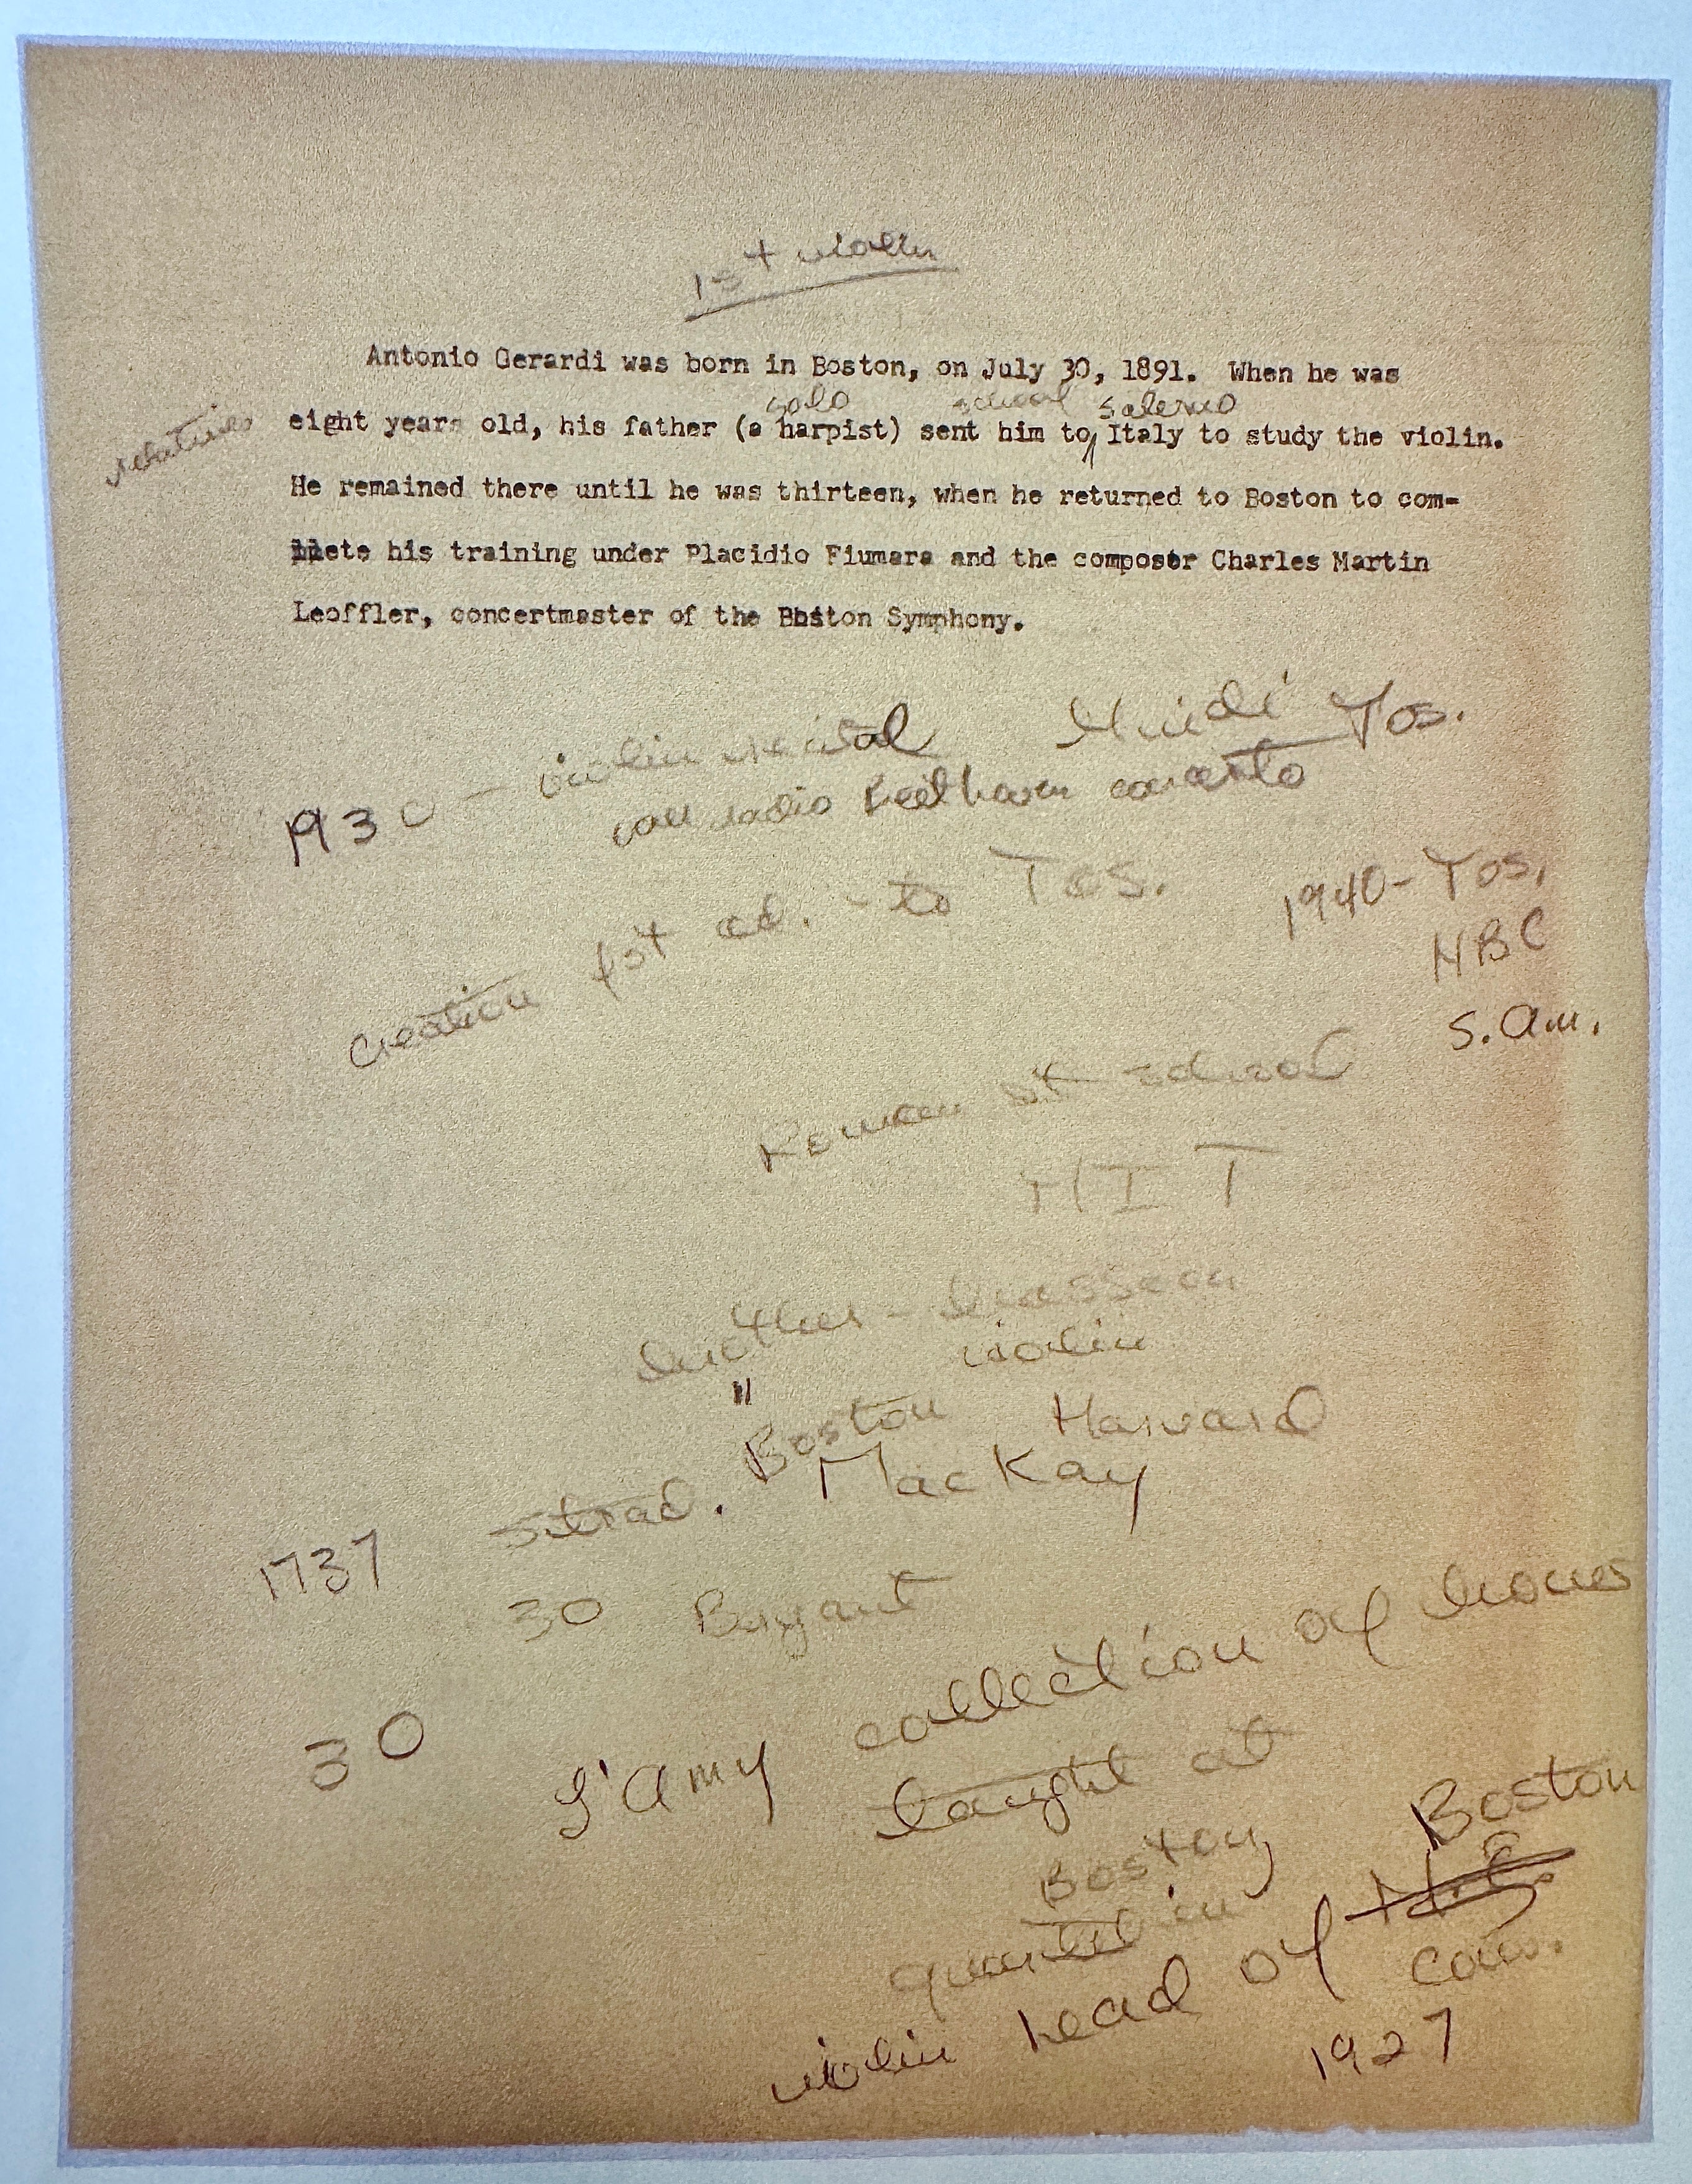 1st violin
Antonio Gerardi was born in Boston, on July 30, 1891. When he was
solo school Salerno
relatives
eight years old, his father (a harpist) sent him to Italy to study the violin.
He remained there until he was thirteen, when he returned to Boston to com-
plete his training under Placidio Fiumara and the composer Charles Martin
Leoffler, concertmaster of the Boston Symphony.
1930 - violin recital
Tos.
radio Beethoven concerto
Creation 1st ed. - to Tos.
1940 - Tos.
NBC
S. Am.
at school
MIT
violin
"
Boston Harvard
1737 Strad. MacKay
30 Bryant
30 L'Amy collection of
taught at
Boston
quartet in Boston
violin head of N.E.
Cons.
1927